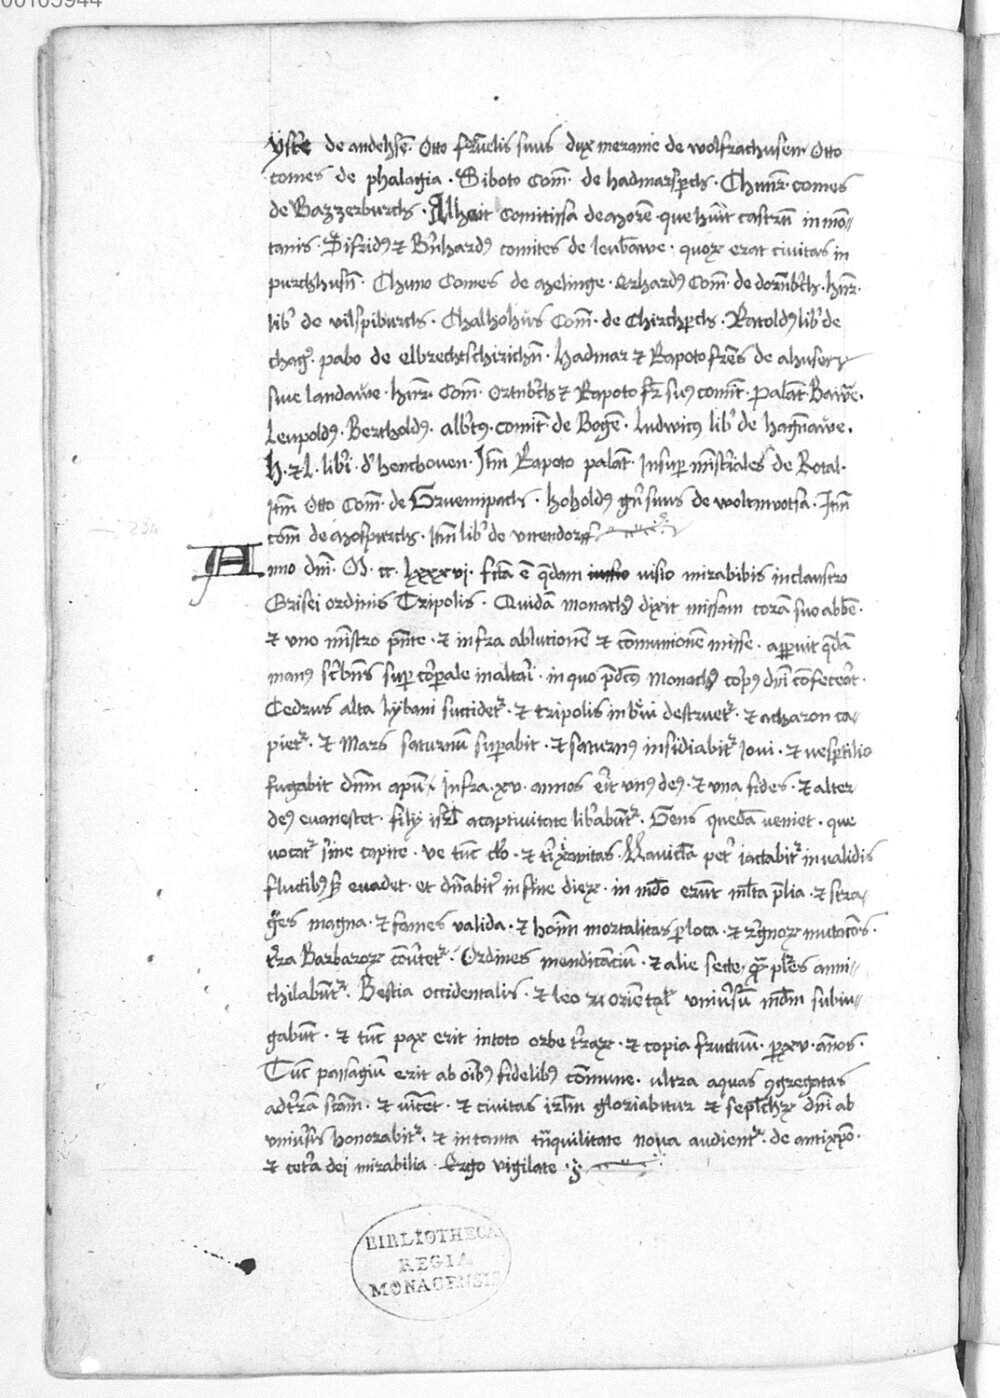 00103944
ystr̄e de andehsē. Otto fr̄uelis suus dux meranie de wolfrachusen Otto
comes de phalagia. Siboto Com̄. de hadmarsperch. Chunr̄. comes
de Bazzerburch. Alheit Comitissa de morē. que huit castrū in mō
tanis. Sifrid9 ⁊ Bernhard9 comites de leubēawe. quor erat civitas in
purchhusn̄. Chuno Comes de melinge. Erhard9 Com̄. de dornb̄ch. hnr̄.
lib' de vilspiburch. Chalhoh9 Com̄. de Chirchperch. Ratold9 lib' de
chag. pabo de elbrechtschirichn̄. hadmar ⁊ Rapoto fr̄es de ahusen
siue landawe. hnr̄. Com̄. Ortnb̄ch ⁊ Rapoto fr̄ sius comit̄. palat̄. Baw̄e.
Leupold9. Berthold9. alb't9. comit̄. de Bogē. Ludwic9 lib' de hagnawe.
H. ⁊ L. lib'i. d' henchoven. Itm̄ Rapoto palat̄. Insup ministr̄iales de Rotal.
Itm̄ Otto Com̄. de Gruenipach. hohold9 gn̄ suus de woltmotsa. Itm̄
com̄ de mospurch. Itm̄ lib' de vttendorf
Anno dm̄. M. cc. lxxxvi. fc̄a ē q̄dam visio mirabibis in claustro
Grisei ordinis Tripolis. Quidā monach9 dixit missam corā suo abbē.
⁊ uno mīstro pn̄te. ⁊ infra ablutionē ⁊ cōmunionē misse. apparuit q̄dā
man9 sc'bēns sup corpale in altari. in quo p̄dc̄us monach9 corp9 dn̄i cōfecerat.
Cedrus alta lybani succidet᷑. ⁊ tripolis in breui destruet᷑. ⁊ acharon ca
piet᷑. ⁊ Mars saturnū supabit. ⁊ saturn9 insidiabit᷑ Ioui. ⁊ vespertilio
fugabit dnm̄ apum. Infra. xv. annos erit vn9 de9. ⁊ vna fides. ⁊ alter
de9 euanescet. filij isrl̄ a captiuitate lib'abūt᷑. Gens quedā veniet. que
vocat᷑ sine capite. ve tūc clero. ⁊ tibi xp̄ianitas. Nauicula petri iactabit᷑ in validis
fluctib9 s; euadet. et dn̄abit᷑ in fine dier. in mdo erūt ml̄ta prelia. ⁊ stra
ges magna. ⁊ fames valida. ⁊ hoim̄ mortalitas p loca. ⁊ regnor mutacōes.
tr̄ra Barbaror cōuertet᷑. Ordines mendicāciū. ⁊ alie secte q̄ pl̄es anni
chilabūt᷑. Bestia occidentalis. ⁊ leo orientalis vniuersū mdm̄ subiu
gabūt. ⁊ tūc pax erit in toto orbe t'rar. ⁊ copia fructuū. p xv. annos.
Tūc passagiū erit ab oib9 fidelib9 cōmune. vltra aquas 9gregatas
ad t'rā scām. ⁊ vīcent. ⁊ civitas irlm̄ gloriabitur ⁊ sepulchr dn̄i ab
vniuersis honorabit᷑. ⁊ in tanta tr̄nquilitate noua audient᷑. de antixpō.
⁊ cet'a dei mirabilia. Ergo vigilate
BIBLIOTHECA
REGIA
MONACENSIS